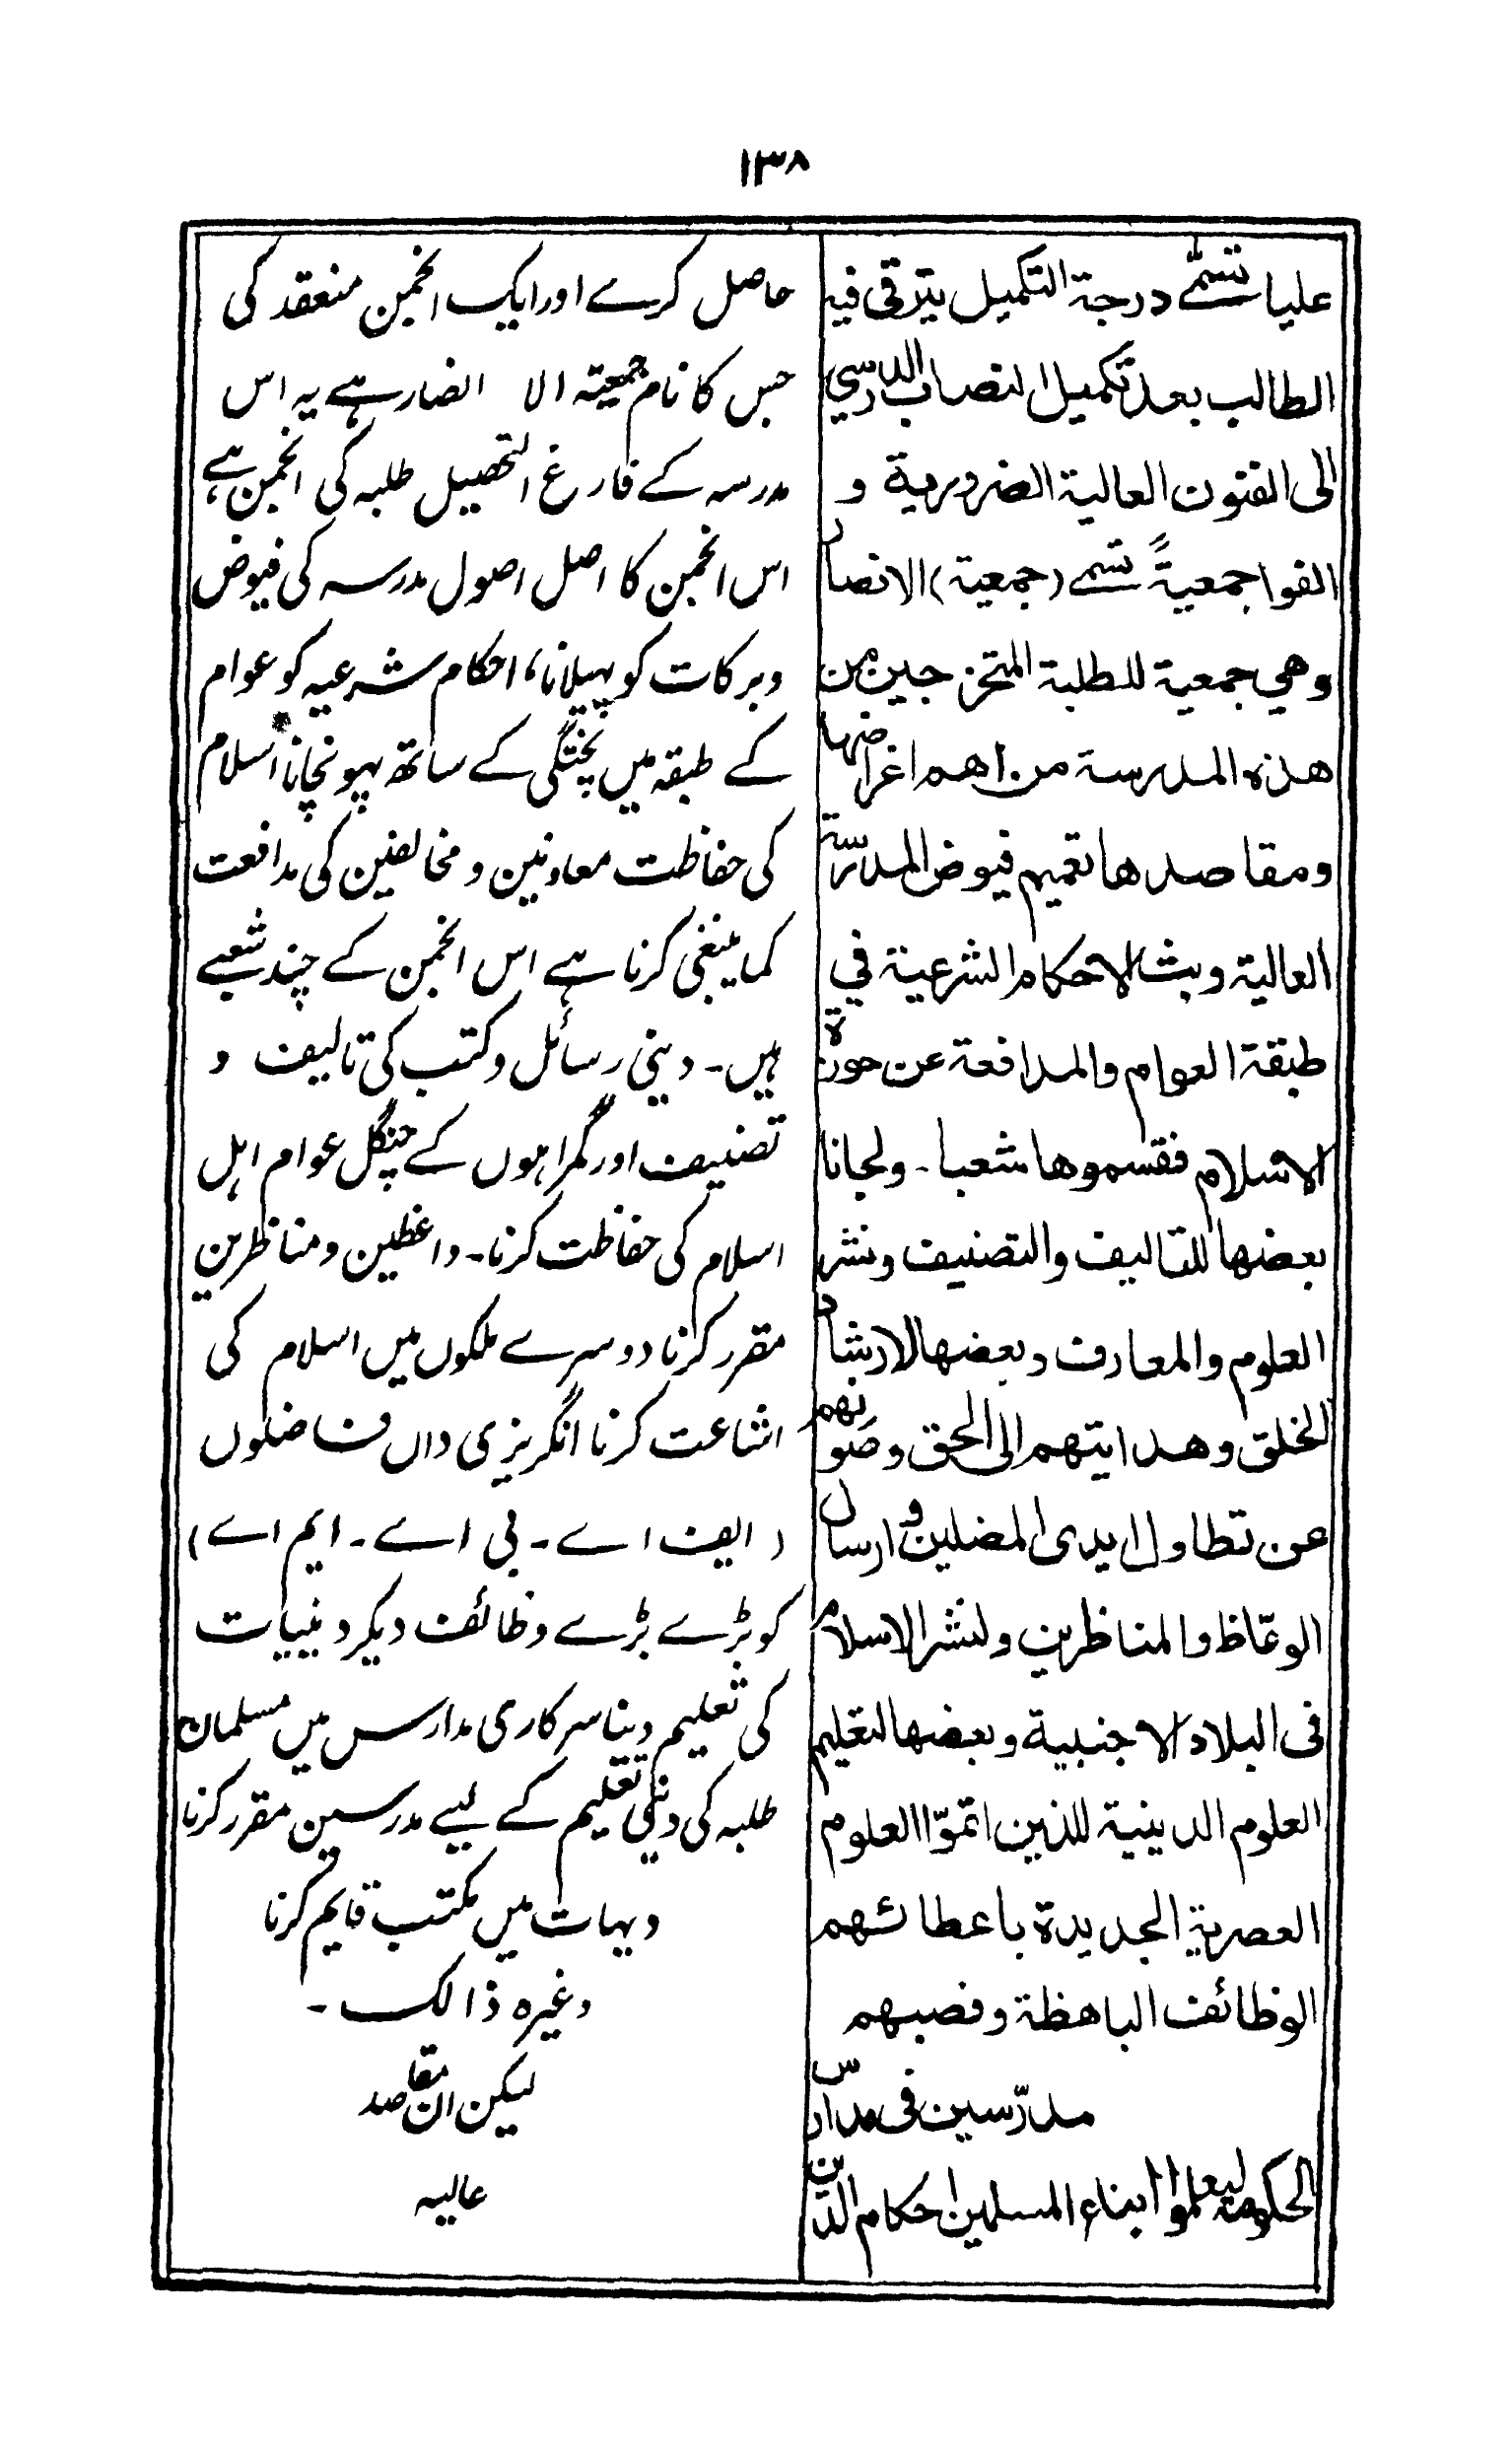 ۱۳۸
علیا تسمّے درجة التکمیل یترقی فیه
الطالب بعد تکمیل النصاب الدرسي
الی الفنون العالیة الضروریة و
الفوا جمعیةً تسمے (جمعیة) الانصار
وهي جمعیة للطلبة المتخرجین من
هذه المدرسة من اهم اغراضها
ومقاصدها تعمیم فیوض المدرسة
العالیة وبث الاحکام الشرعیة في
طبقة العوام والمدافعة عن حوزة
الاسلام فقسموها شعبا - ولجانا
بعضها للتالیف والتصنیف ونشر
العلوم والمعارف وبعضها لارشاد
الخلق وهدایتهم الی الحق وصونهم
عن تطاول ایدی المضلین و ارسال
الوعّاظ والمناظرین ولنشر الاسلام
فی البلاد الاجنبیة وبعضها لتعلیم
العلوم الدینیة للذین اتموّا العلوم
العصریة الجدیدة باعطائهم
الوظائف الباهظة ونصبهم
مدرّسین فی مدارس
الحکومة لیعلموا ابناء المسلمین احکام الدین
حاصل کرے اور ایک انجمن منعقد کی
جس کا نام جمیعته الا انصار ہے یہ اس
مدرسہ کے فارغ التحصیل طلبہ کی انجمن ہے
اس انجمن کا اصل اصول مدرسہ کی فیوض
وبرکات کو پھیلانا، احکام شرعیہ کو عوام
کے طبقہ میں پختگی کے ساتھ پہونچانا اسلام
کی حفاظت معاونین و مخالفین کی مدافعت
کما ینبغی کرنا ہے اس انجمن کے چند شعبے
ہیں۔ دینی رسائل و کتب کی تالیف و
تصنیف اور گمراہوں کے چنگل عوام اہل
اسلام کی حفاظت کرنا۔ واعظین و مناظرین
مقرر کرنا دوسرے ملکوں میں اسلام کی
اشاعت کرنا انگریزی داں فاضلوں
(ایف اے۔ بی اے۔ ایم اے)
کو بڑے بڑے وظائف دیکر دینیات
کی تعلیم دینا سرکاری مدارس میں مسلمان
طلبہ کی دینی تعلیم کے لیے مدرسین مقرر کرنا
دیہات میں مکتب قایم کرنا
وغیرہ ذالک۔
لیکن ان مقاصد
عالیہ